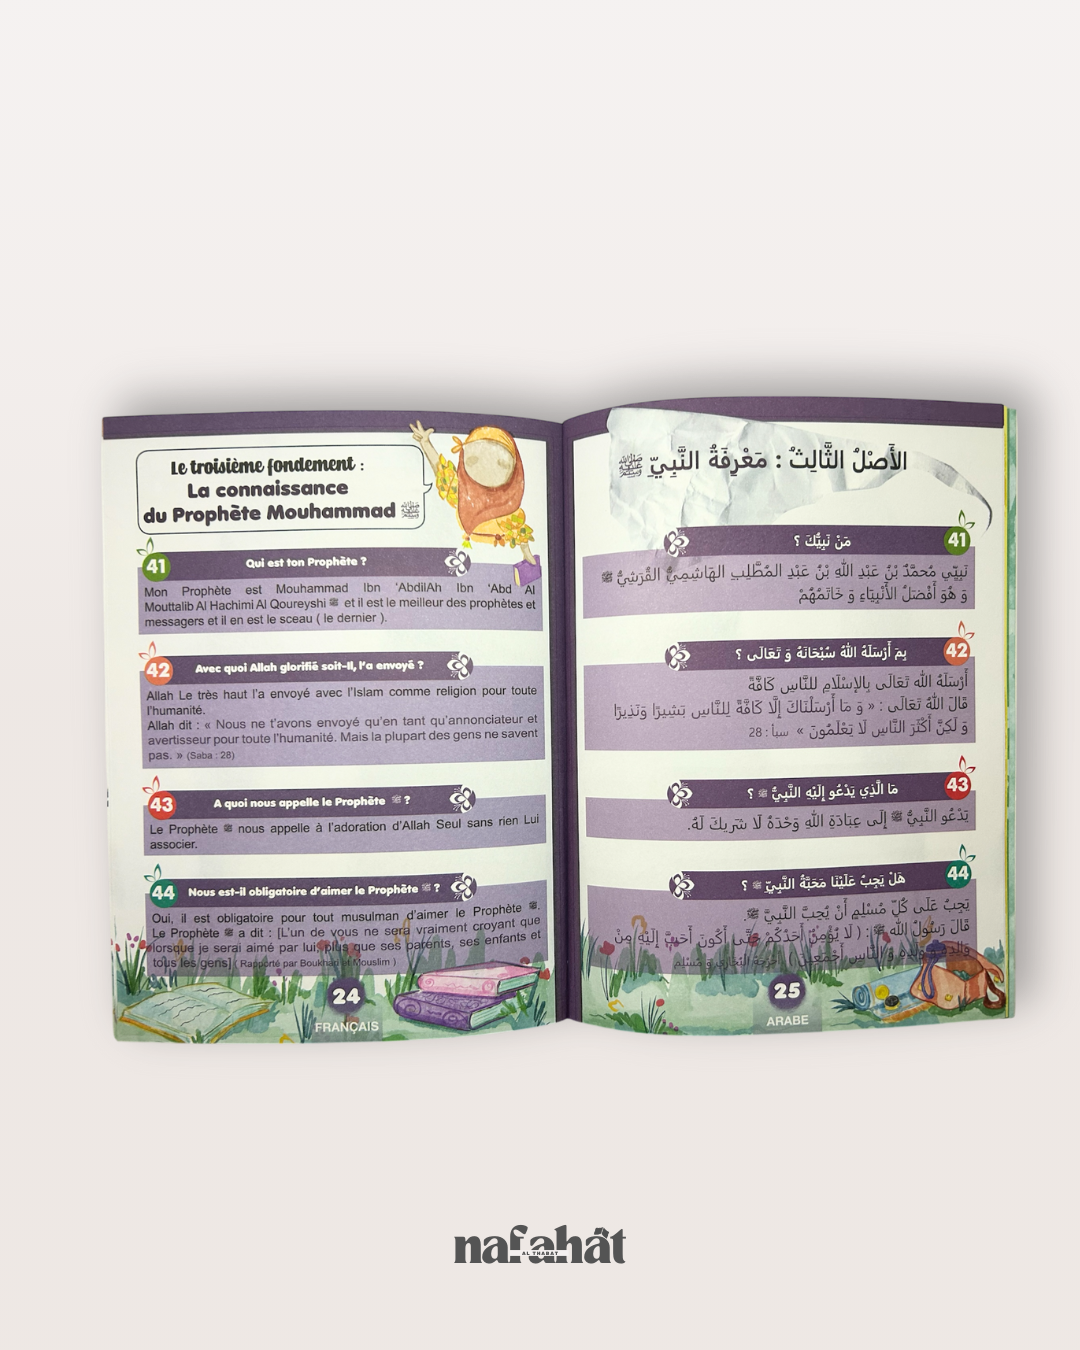 Le troisième fondement :
La connaissance
du Prophète Mouhammad ﷺ
41
Qui est ton Prophète ?
Mon Prophète est Mouhammad Ibn ‘AbdilAh Ibn ‘Abd Al
Mouttalib Al Hachimi Al Qoureyshi ﷺ et il est le meilleur des prophètes et
messagers et il en est le sceau ( le dernier ).
42
Avec quoi Allah glorifié soit-Il, l’a envoyé ?
Allah Le très haut l’a envoyé avec l’Islam comme religion pour toute
l’humanité.
Allah dit : « Nous ne t’avons envoyé qu’en tant qu’annonciateur et
avertisseur pour toute l’humanité. Mais la plupart des gens ne savent
pas. » (Saba : 28)
43
A quoi nous appelle le Prophète ﷺ ?
Le Prophète ﷺ nous appelle à l’adoration d’Allah Seul sans rien Lui
associer.
44
Nous est-il obligatoire d’aimer le Prophète ﷺ ?
Oui, il est obligatoire pour tout musulman d’aimer le Prophète ﷺ.
Le Prophète ﷺ a dit : [L’un de vous ne sera vraiment croyant que
lorsque je serai aimé par lui, plus que ses parents, ses enfants et
tous les gens] ( Rapporté par Boukhari et Mouslim )
24
FRANÇAIS
الأَصْلُ الثَّالِثُ : مَعْرِفَةُ النَّبِيِّ ﷺ
41
مَنْ نَبِيُّكَ ؟
نَبِيِّي مُحمَّدٌ بْنُ عَبْدِ اللهِ بْنُ عَبْدِ المُطَّلِبِ الهَاشِمِيُّ القُرَشِيُّ ﷺ
وَ هُوَ أَفْضَلُ الأَنْبِيَاءِ وَ خَاتَمُهُمْ
42
بِمَ أَرْسَلَهُ اللهُ سُبْحَانَهُ وَ تَعَالَى ؟
أَرْسَلَهُ اللهُ تَعَالَى بِالإِسْلَامِ للنَّاسِ كَافَّةً
قَالَ اللهُ تَعَالَى : « وَ مَا أَرْسَلْنَاكَ إِلَّا كَافَّةً لِلنَّاسِ بَشِيرًا وَنَذِيرًا
وَ لَكِنَّ أَكْثَرَ النَّاسِ لَا يَعْلَمُونَ » سبأ : 28
43
مَا الَّذِي يَدْعُو إِلَيْهِ النَّبِيُّ ﷺ ؟
يَدْعُو النَّبِيُّ ﷺ إِلَى عِبَادَةِ اللهِ وَحْدَهُ لَا شَرِيكَ لَهُ.
44
هَلْ يَجِبُ عَلَيْنَا مَحَبَّةُ النَّبِيِّ ﷺ ؟
يَجِبُ عَلَى كُلِّ مُسْلِمٍ أَنْ يُحِبَّ النَّبِيَّ ﷺ.
قَالَ رَسُولُ اللهِ ﷺ : ( لَا يُؤْمِنُ أَحَدُكُمْ حَتَّى أَكُونَ أَحَبَّ إِلَيْهِ مِنْ
وَالِدِهِ وَ وَلَدِهِ وَ النَّاسِ أَجْمَعِينَ ) أخرجه البخاري و مسلم
25
ARABE
nafahât
AL THABAT